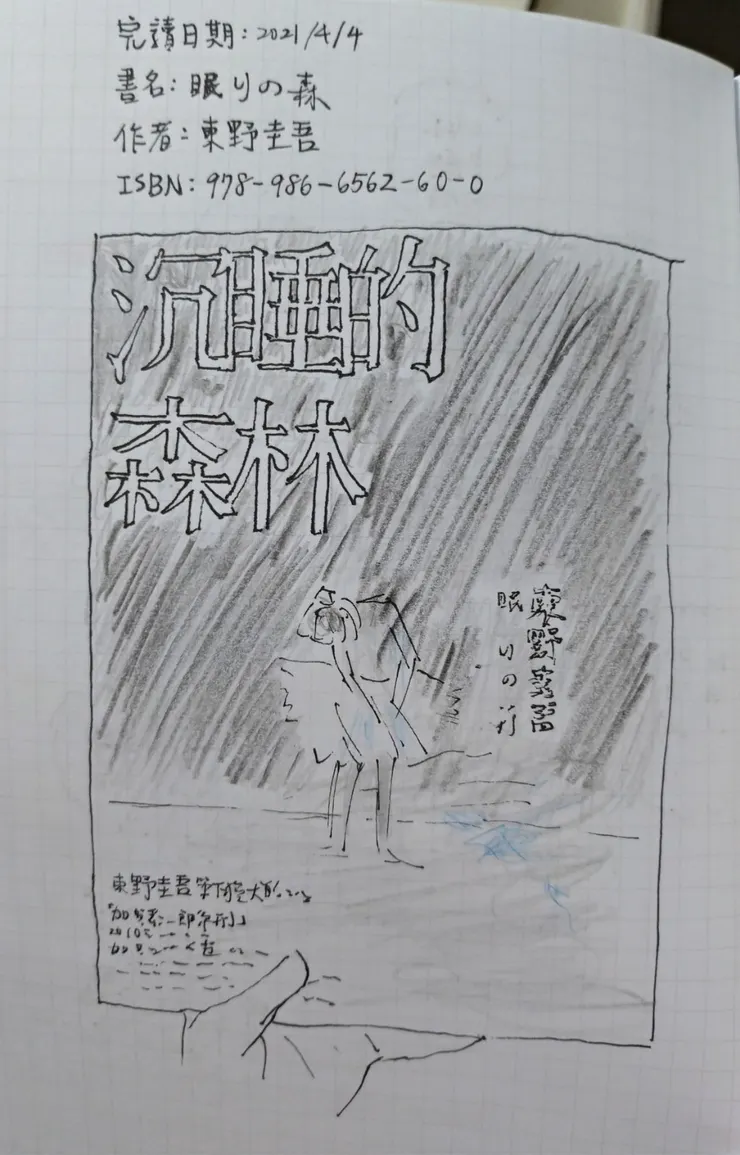 完讀日期:2021/4/4
書名:眠りの森
作者:東野圭吾
ISBN:978-986-6562-60-0
沉睡的
森林
東野圭吾
眠りの森
東野圭吾筆下
「加賀恭一郎系列」